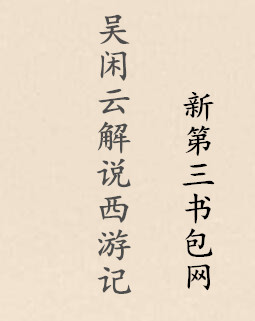 吴闲云解说西游记
新第三书包网